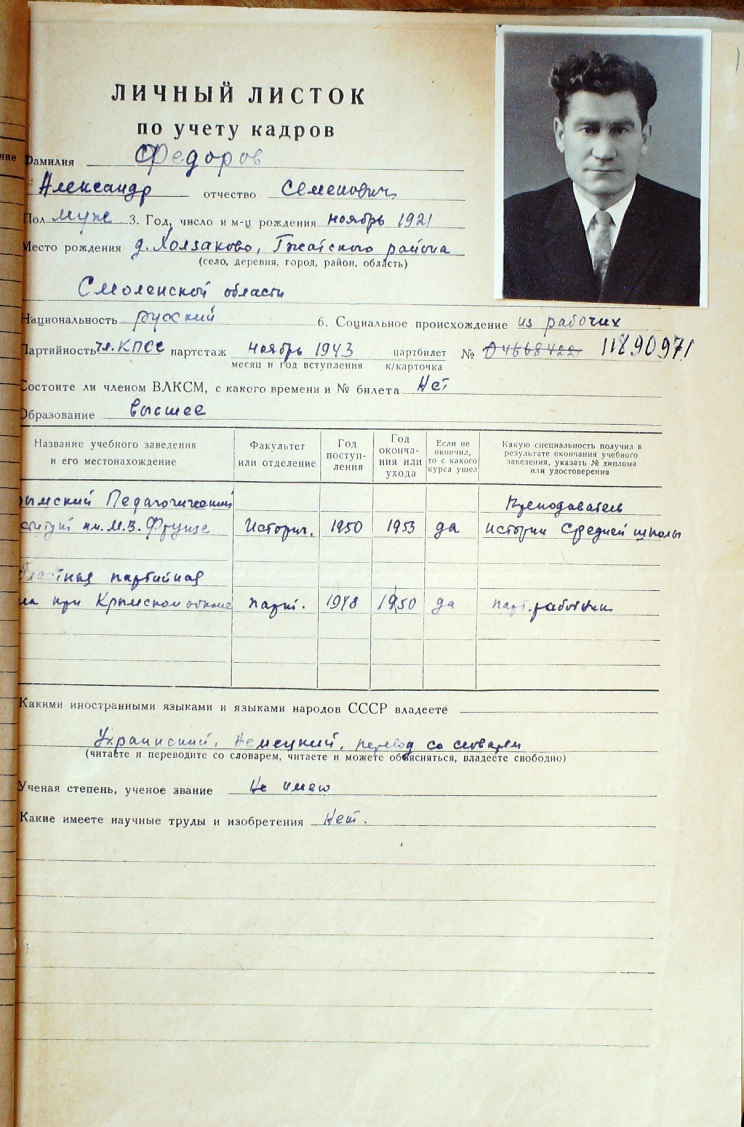 ЛИЧНЫЙ ЛИСТОК
по учету кадров
Фамилия Федоров
Александр отчество Семенович
Пол муж 3. Год, число и м-ц рождения ноябрь 1921
Место рождения д. Холзаково, Гжатского района
(село, деревня, город, район, область)
Смоленской области
Национальность русский 6. Социальное происхождение из рабочих
Партийность чл. КПСС партстаж ноябрь 1943 партбилет № 04668422 11890971
месяц и год вступления к/карточка
Состоите ли членом ВЛКСМ, с какого времени и № билета Нет
Образование высшее
Название учебного заведения и его местонахождение
Факультет или отделение
Год поступ-ления
Год оконча-ния или ухода
Если не окончил, то с какого курса ушел
Какую специальность получил в результате окончания учебного заведения, указать № диплома или удостоверения
ымский Педагогический Преподаватель
ститут им. М.В. Фрунзе Историч. 1950 1953 да истории средней школы
ластная партийная
ла при Крымском обкоме парт. 1948 1950 да парт. работник
Какими иностранными языками и языками народов СССР владеете
Украинский, Немецкий, перевод со словарем
(читаете и переводите со словарем, читаете и можете объясняться, владеете свободно)
Ученая степень, ученое звание Не имею
Какие имеете научные труды и изобретения Нет.